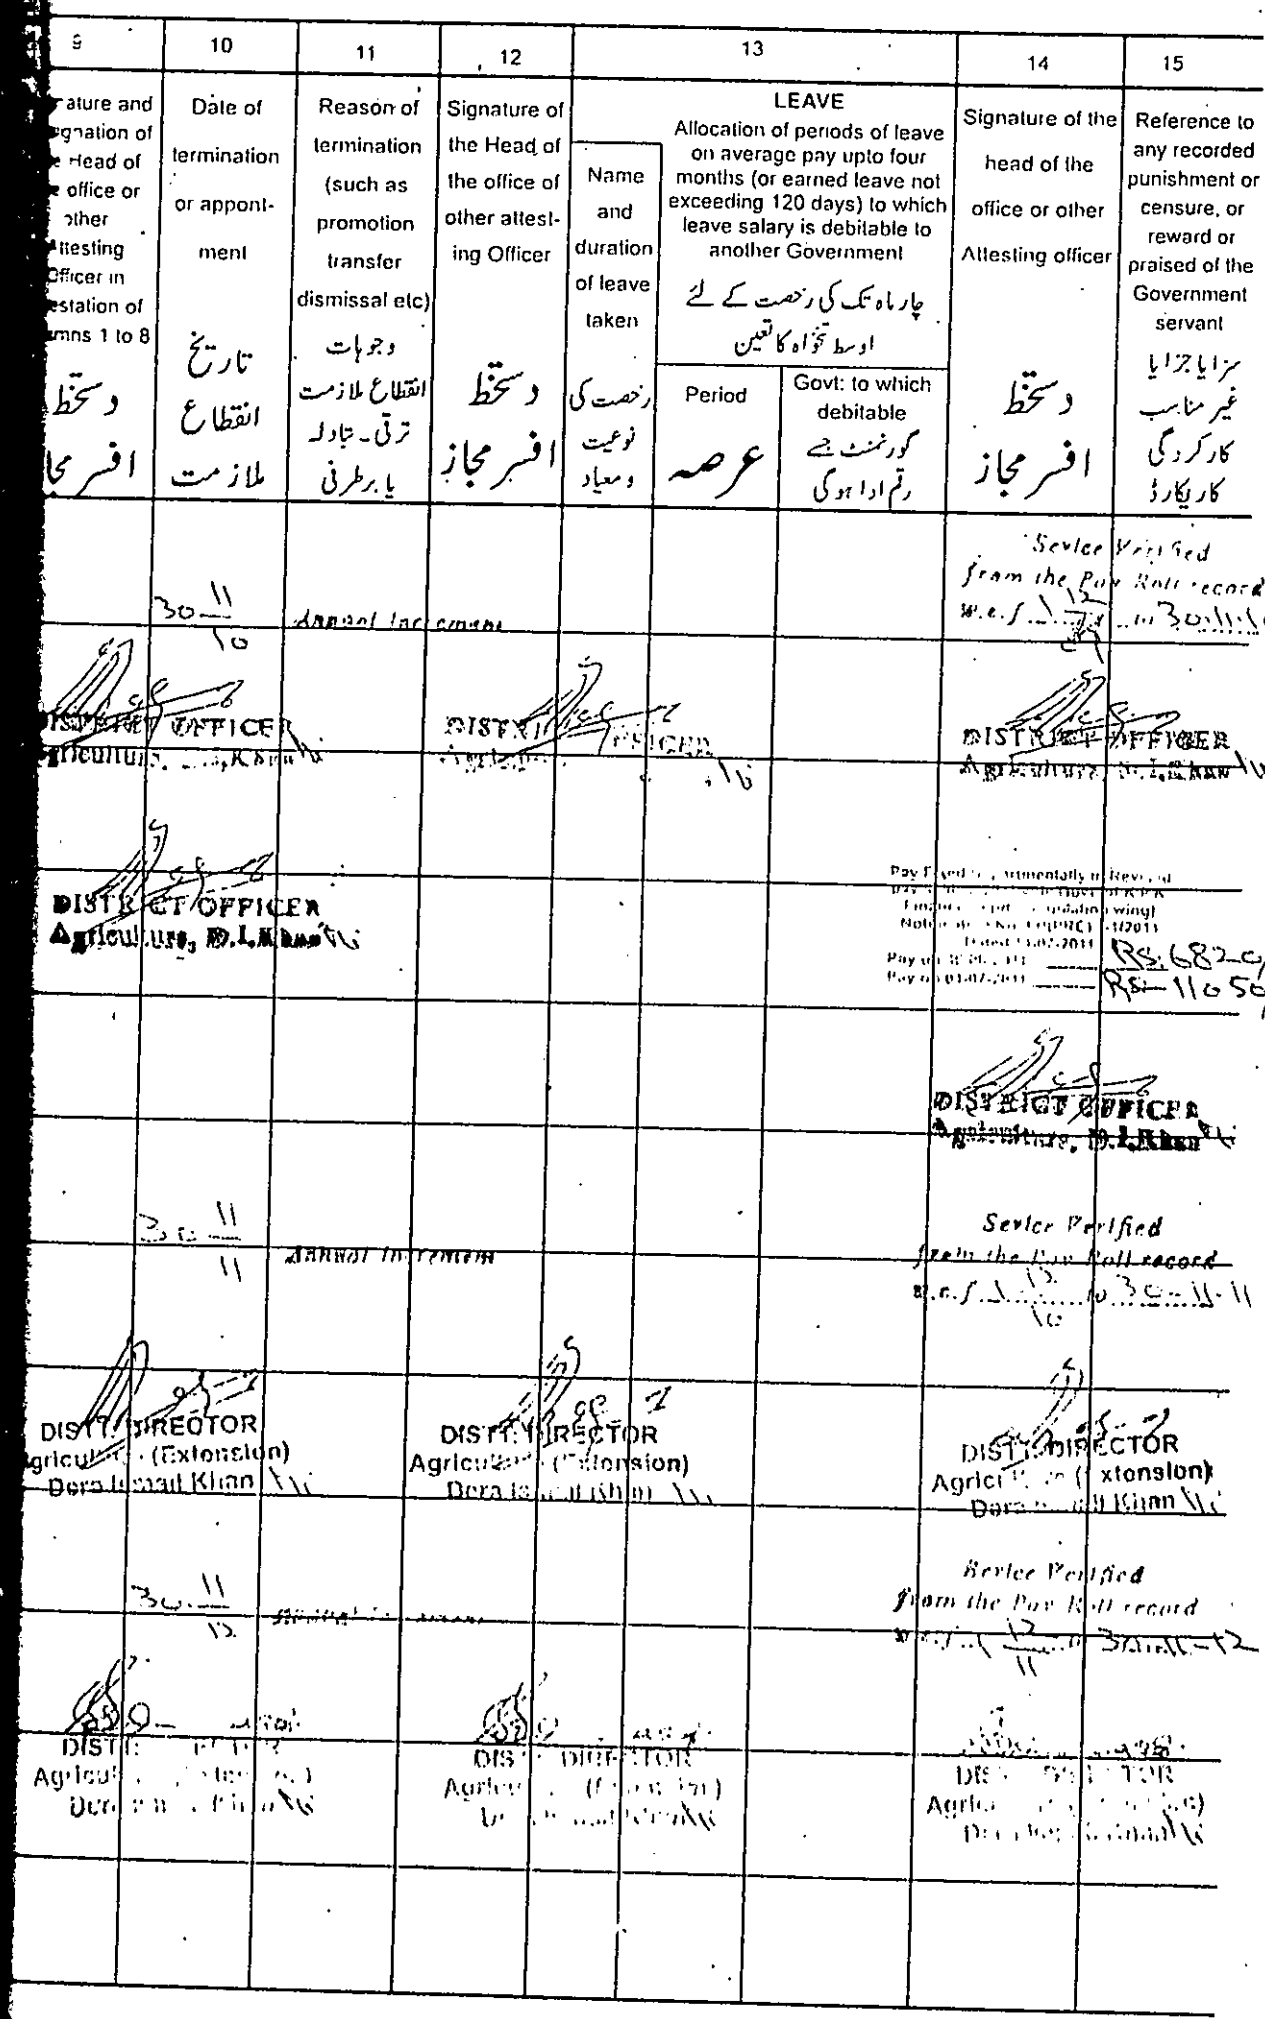 9 10 11 12 13 14 15
ature and
gnation of
Head of
office or
other
ttesting
Officer in
estation of
mns 1 to 8
دستخط
افسر مجا
Date of
termination
or appont-
ment
تاریخ
انقطاع
ملازمت
Reason of
termination
(such as
promotion
transfer
dismissal etc)
وجوہات
انقطاع ملازمت
ترقی۔تبادلہ
یا برطرفی
Signature of
the Head of
the office of
other attest-
ing Officer
دستخط
افسر مجاز
LEAVE
Name
and
duration
of leave
taken
رخصت کی
نوعیت
و معیاد
Allocation of periods of leave
on average pay upto four
months (or earned leave not
exceeding 120 days) to which
leave salary is debitable to
another Government
چار ماہ تک کی رخصت کے لئے
اوسط تنخواہ کا تعین
Period
عرصہ
Govt: to which
debitable
گورنمنٹ جسے
رقم ادا ہوگی
Signature of the
head of the
office or other
Attesting officer
دستخط
افسر مجاز
Reference to
any recorded
punishment or
censure, or
reward or
praised of the
Government
servant
سزا یا جزا یا
غیر مناسب
کارکردگی
کا ریکارڈ
30 11/10
Annual Increment
Sevice Verified
from the Pay Roll record
w.e.f 1 12/09 to 30.11.1
DISTRICT OFFICER
griculture,
DISTRICT OFFICER
DISTRICT OFFICER
Agriculture, D.I.Khan
DISTRICT OFFICER
Agriculture, D.I.Khan
Pay on
Rs. 6820
Pay on 01-07-2011
Rs 11050
DISTRICT OFFICER
Agriculture, D.I.Khan
30 11/11
Annual Increment
Sevice Verified
from the Pay Roll record
w.e.f 1 12/10 to 30-11-11
DISTT: DIRECTOR
griculture (Extension)
Dera Ismail Khan
DISTT: DIRECTOR
Agriculture (Extension)
Dera Ismail Khan
DISTT: DIRECTOR
Agriculture (Extension)
Dera Ismail Khan
30. 11/12
Annual Increment
Sevice Verified
from the Pay Roll record
w.e.f 1 12/11 to 30-11-12
DISTT:
Agricul
DISTT: DIRECTOR
Agricul
DISTT: DIRECTOR
Agricul